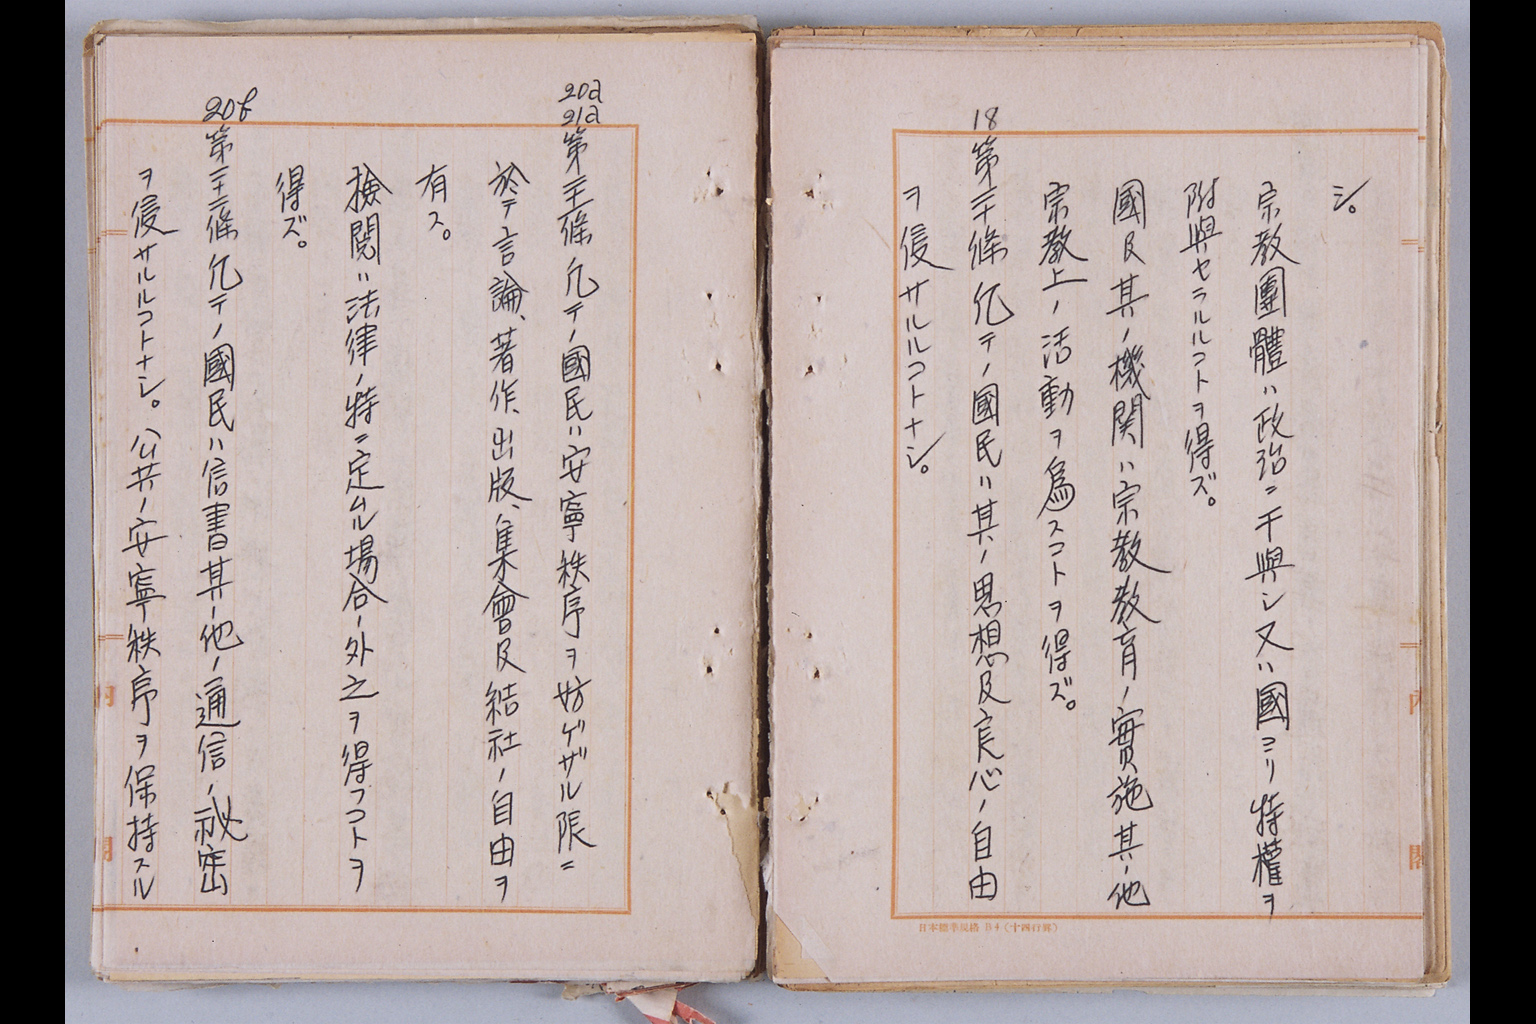 シ。
宗教團體ハ政治ニ干與シ又ハ國ヨリ特權ヲ
附與セラルルコトヲ得ズ。
國及其ノ機関ハ宗教教育ノ實施其ノ他
宗教上ノ活動ヲ爲スコトヲ得ズ。
18
第二十條 凡テノ國民ハ其ノ思想及良心ノ自由
ヲ侵サルルコトナシ。
日本標準規格 B4(十四行
20a
21a
第二十一條 凡テノ國民ハ安寧秩序ヲ妨ゲザル限ニ
於テ言論、著作、出版、集會及結社ノ自由ヲ
有ス。
檢閲ハ法律ノ特ニ定ムル場合ノ外之ヲ得フコトヲ
得ズ。
20f
第二十二條 凡テノ國民ハ信書其ノ他ノ通信ノ祕密
ヲ侵サルルコトナシ。公共ノ安寧秩序ヲ保持スル
内
閣